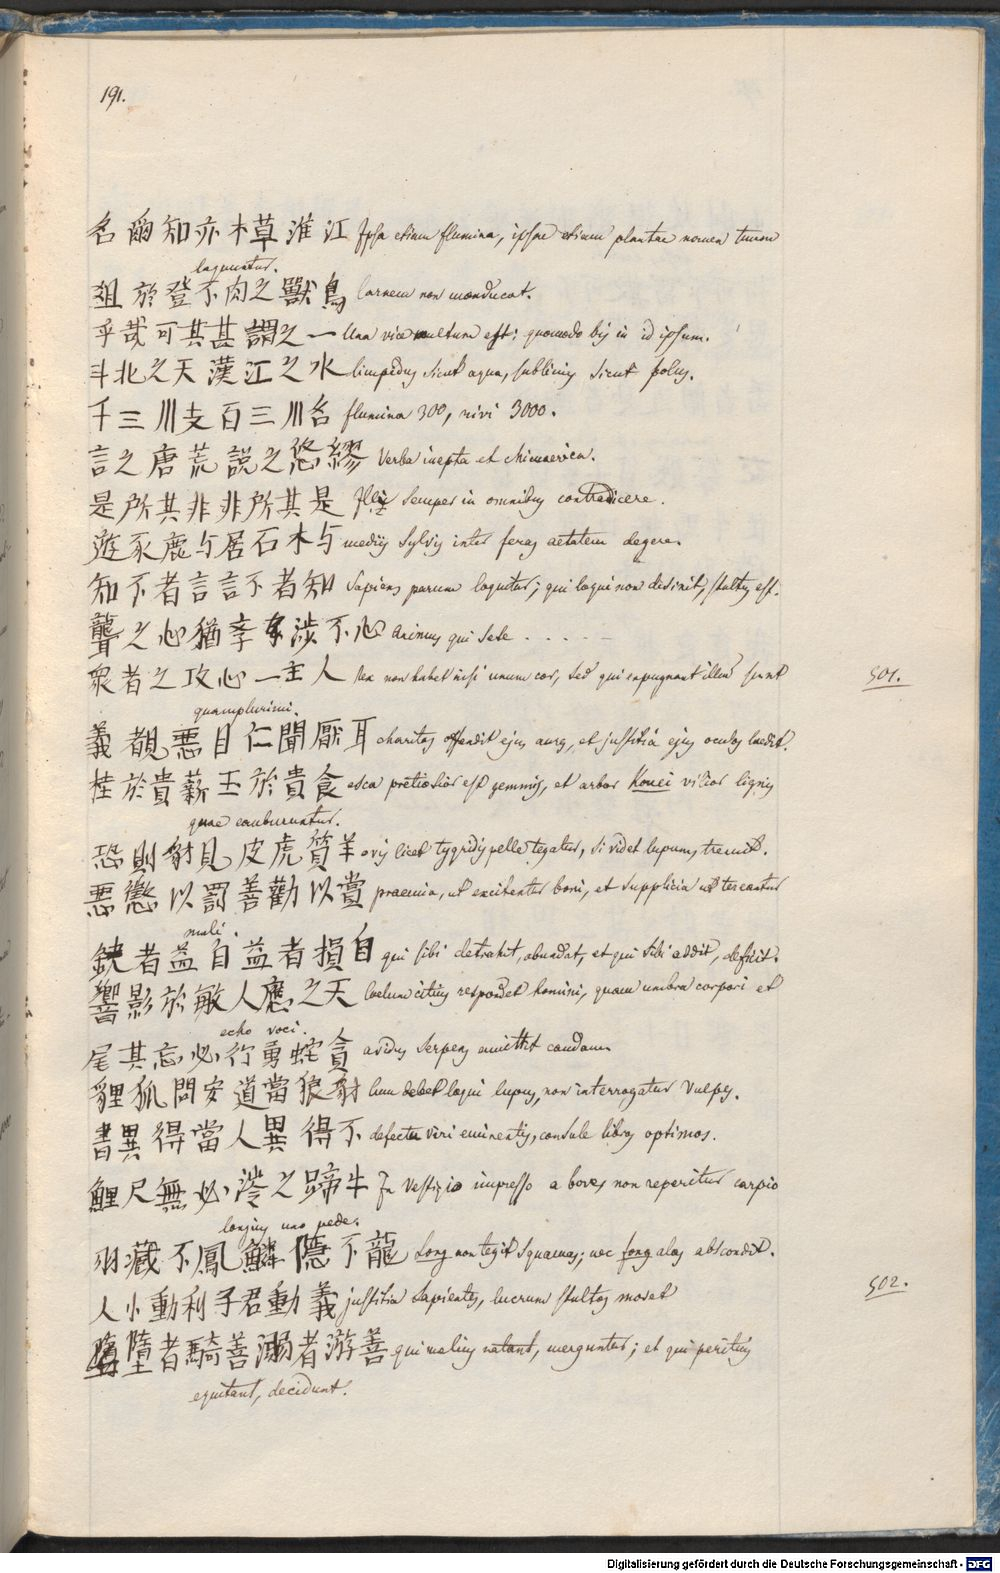 191.
江淮草木亦知爾名 Ipsa etiam flumina, ipsae etiam plantae nomen tuum
loquuntur.
鳥獸之肉不登於俎 Carnem non manducat.
一之謂甚其可哉乎 Una vice multum est: quomodo bis in id ipsum.
水之江漢天之北斗 limpidus sicut aqua, sublimis sicut polus.
名川三百支川三千 flumina 300, rivi 3000.
繆悠之說荒唐之言 Verba inepta et chimaerica.
是其所非非其所是 Illis semper in omnibus contradicere.
与木石居与鹿豕遊 mediis sylvis inter feras aetatem degere.
知者不言言者不知 Sapiens parum loquitur; qui loqui non desinit, stultus est.
心不涉 孝猶心之聾 Animus qui sese . . . . .
人主一心攻之者衆 Rex non habet nisi unum cor, sed qui expugnant illud sunt
501.
quamplurimi.
耳厭聞仁目惡覩義 charitas offendit ejus aures, et justitia ejus oculos laedit.
食貴於玉薪貴於桂 esca pretiosior est gemmis, et arbor Kouei vilior lignis
quae comburuntur.
羊質虎皮見豺則恐 ovis licet tygridis pelle tegatur, si videt lupum, tremit.
賞以勸善罰以懲惡 praemia, ut excitentur boni, et supplicia ut terreantur
mali.
自損者益自益者缺 qui sibi detrahit, abundat, et qui sibi addit, deficit.
天之應人敏於影響 Coelum citius respondet homini, quam umbra corpori et
echo voci.
貪蛇勇行必忘其尾 avidus serpens amittit caudam.
豺狼當道安問狐貍 Cum debet loqui lupus, non interrogatur vulpes.
不得異人當得異書 defectu viri eminentis, consule libros optimos.
牛蹄之涔必無尺鯉 In vestigio impresso a boves non reperitur carpio
longius uno pede.
龍不隱鱗鳳不藏羽 Long non tegit squamas; nec fong alas abscondit.
義動君子利動小人 justitia sapientes, lucrum stultos movet
502.
善游者溺善騎者墮 qui melius natant, merguntur; et qui peritius
equitant, decidunt.
Digitalisierung gefördert durch die Deutsche Forschungsgemeinschaft - DFG